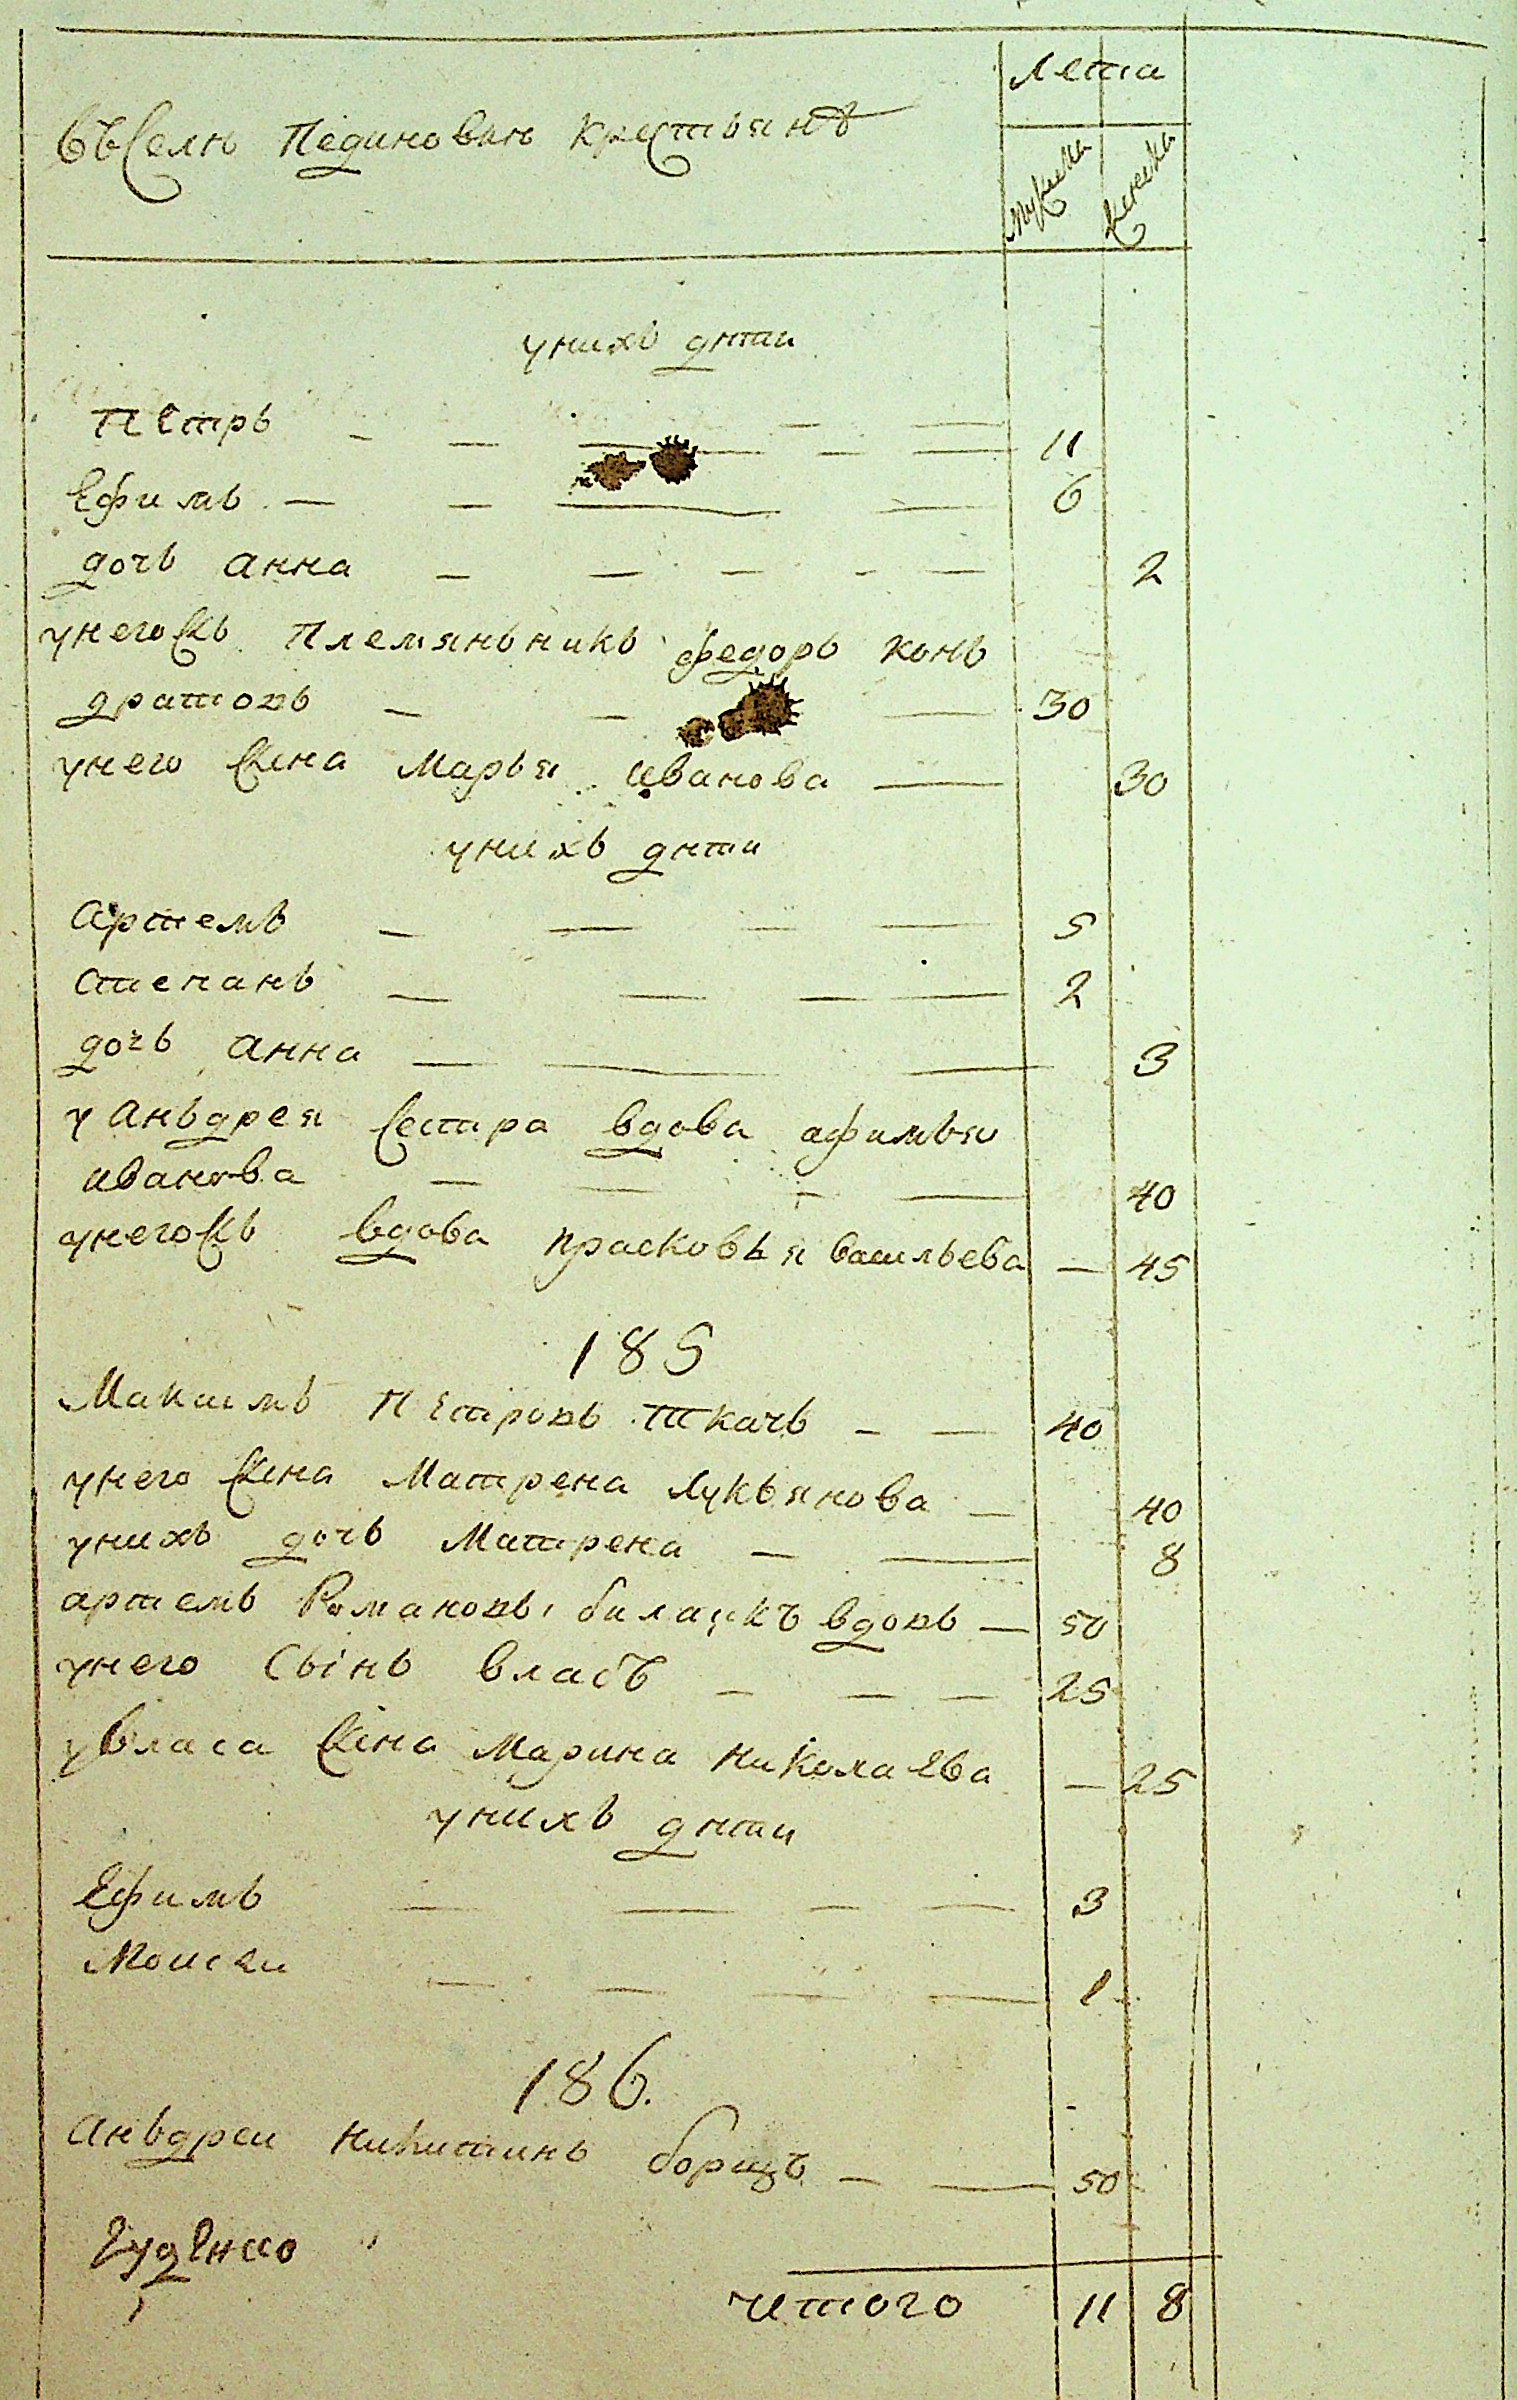 Лета
въ селѣ Пединовкѣ крестьянѣ
мужеска женска
унихъ дѣти
Петръ 11
Ефимъ 6
дочь анна 2
унегожъ племяньникъ федоръ конь
дратовъ 30
унего жена Марья иванова 30
унихъ дѣти
Артемъ 5
степанъ 2
дочь анна 3
у аньдрея сестра вдова афимья
иванова 40
унегожъ вдова прасковья васильева 45
185
Максимъ Петровъ ткачь 40
унего жена Матрена лукьянова 40
унихъ дочь Матрена 8
артемъ Романовъ вдовъ 50
унего сынъ власъ 25
увласа жена марина николаева 25
унихъ дѣти
Ефимъ 3
Моисеи 1
186.
Аньдреи никитинъ борщъ 50
итого 11 8